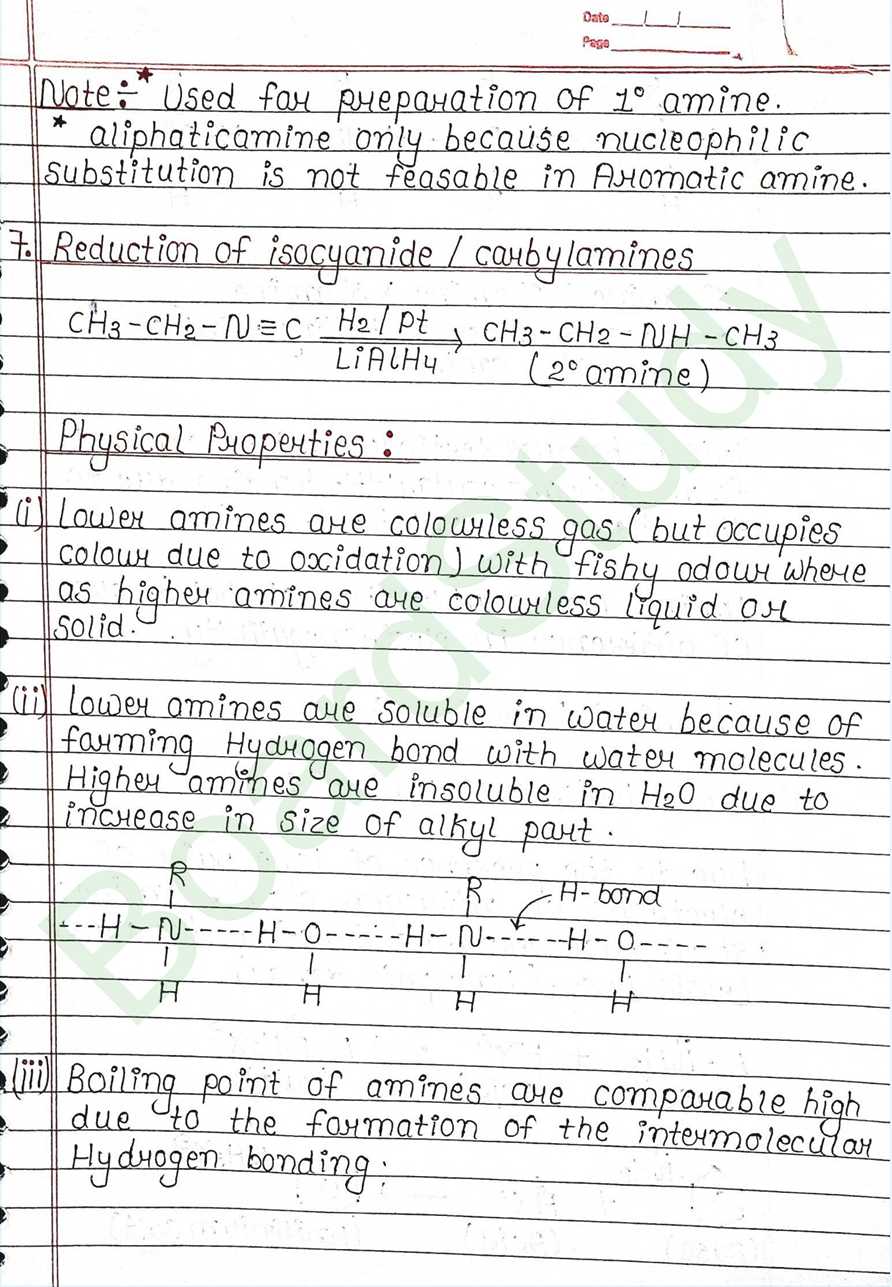 Date / /
Page
Note:- * Used for preparation of 1° amine.
* aliphaticamine only because nucleophilic
substitution is not feasable in Aromatic amine.
7. Reduction of isocyanide / carbylamines
CH3-CH2-N≡C H2/Pt LiAlH4 → CH3-CH2-NH-CH3
(2° amine)
Physical Properties :
(i) Lower amines are colourless gas (but occupies
colour due to oxidation) with fishy odour where
as higher amines are colourless liquid or
solid.
(ii) Lower amines are soluble in water because of
forming Hydrogen bond with water molecules.
Higher amines are insoluble in H2O due to
increase in size of alkyl part.
R R H-bond
---H-N-----H-O-----H-N------H-O----
H H H H
(iii) Boiling point of amines are comparable high
due to the formation of the intermolecular
Hydrogen bonding.
BoardStudy